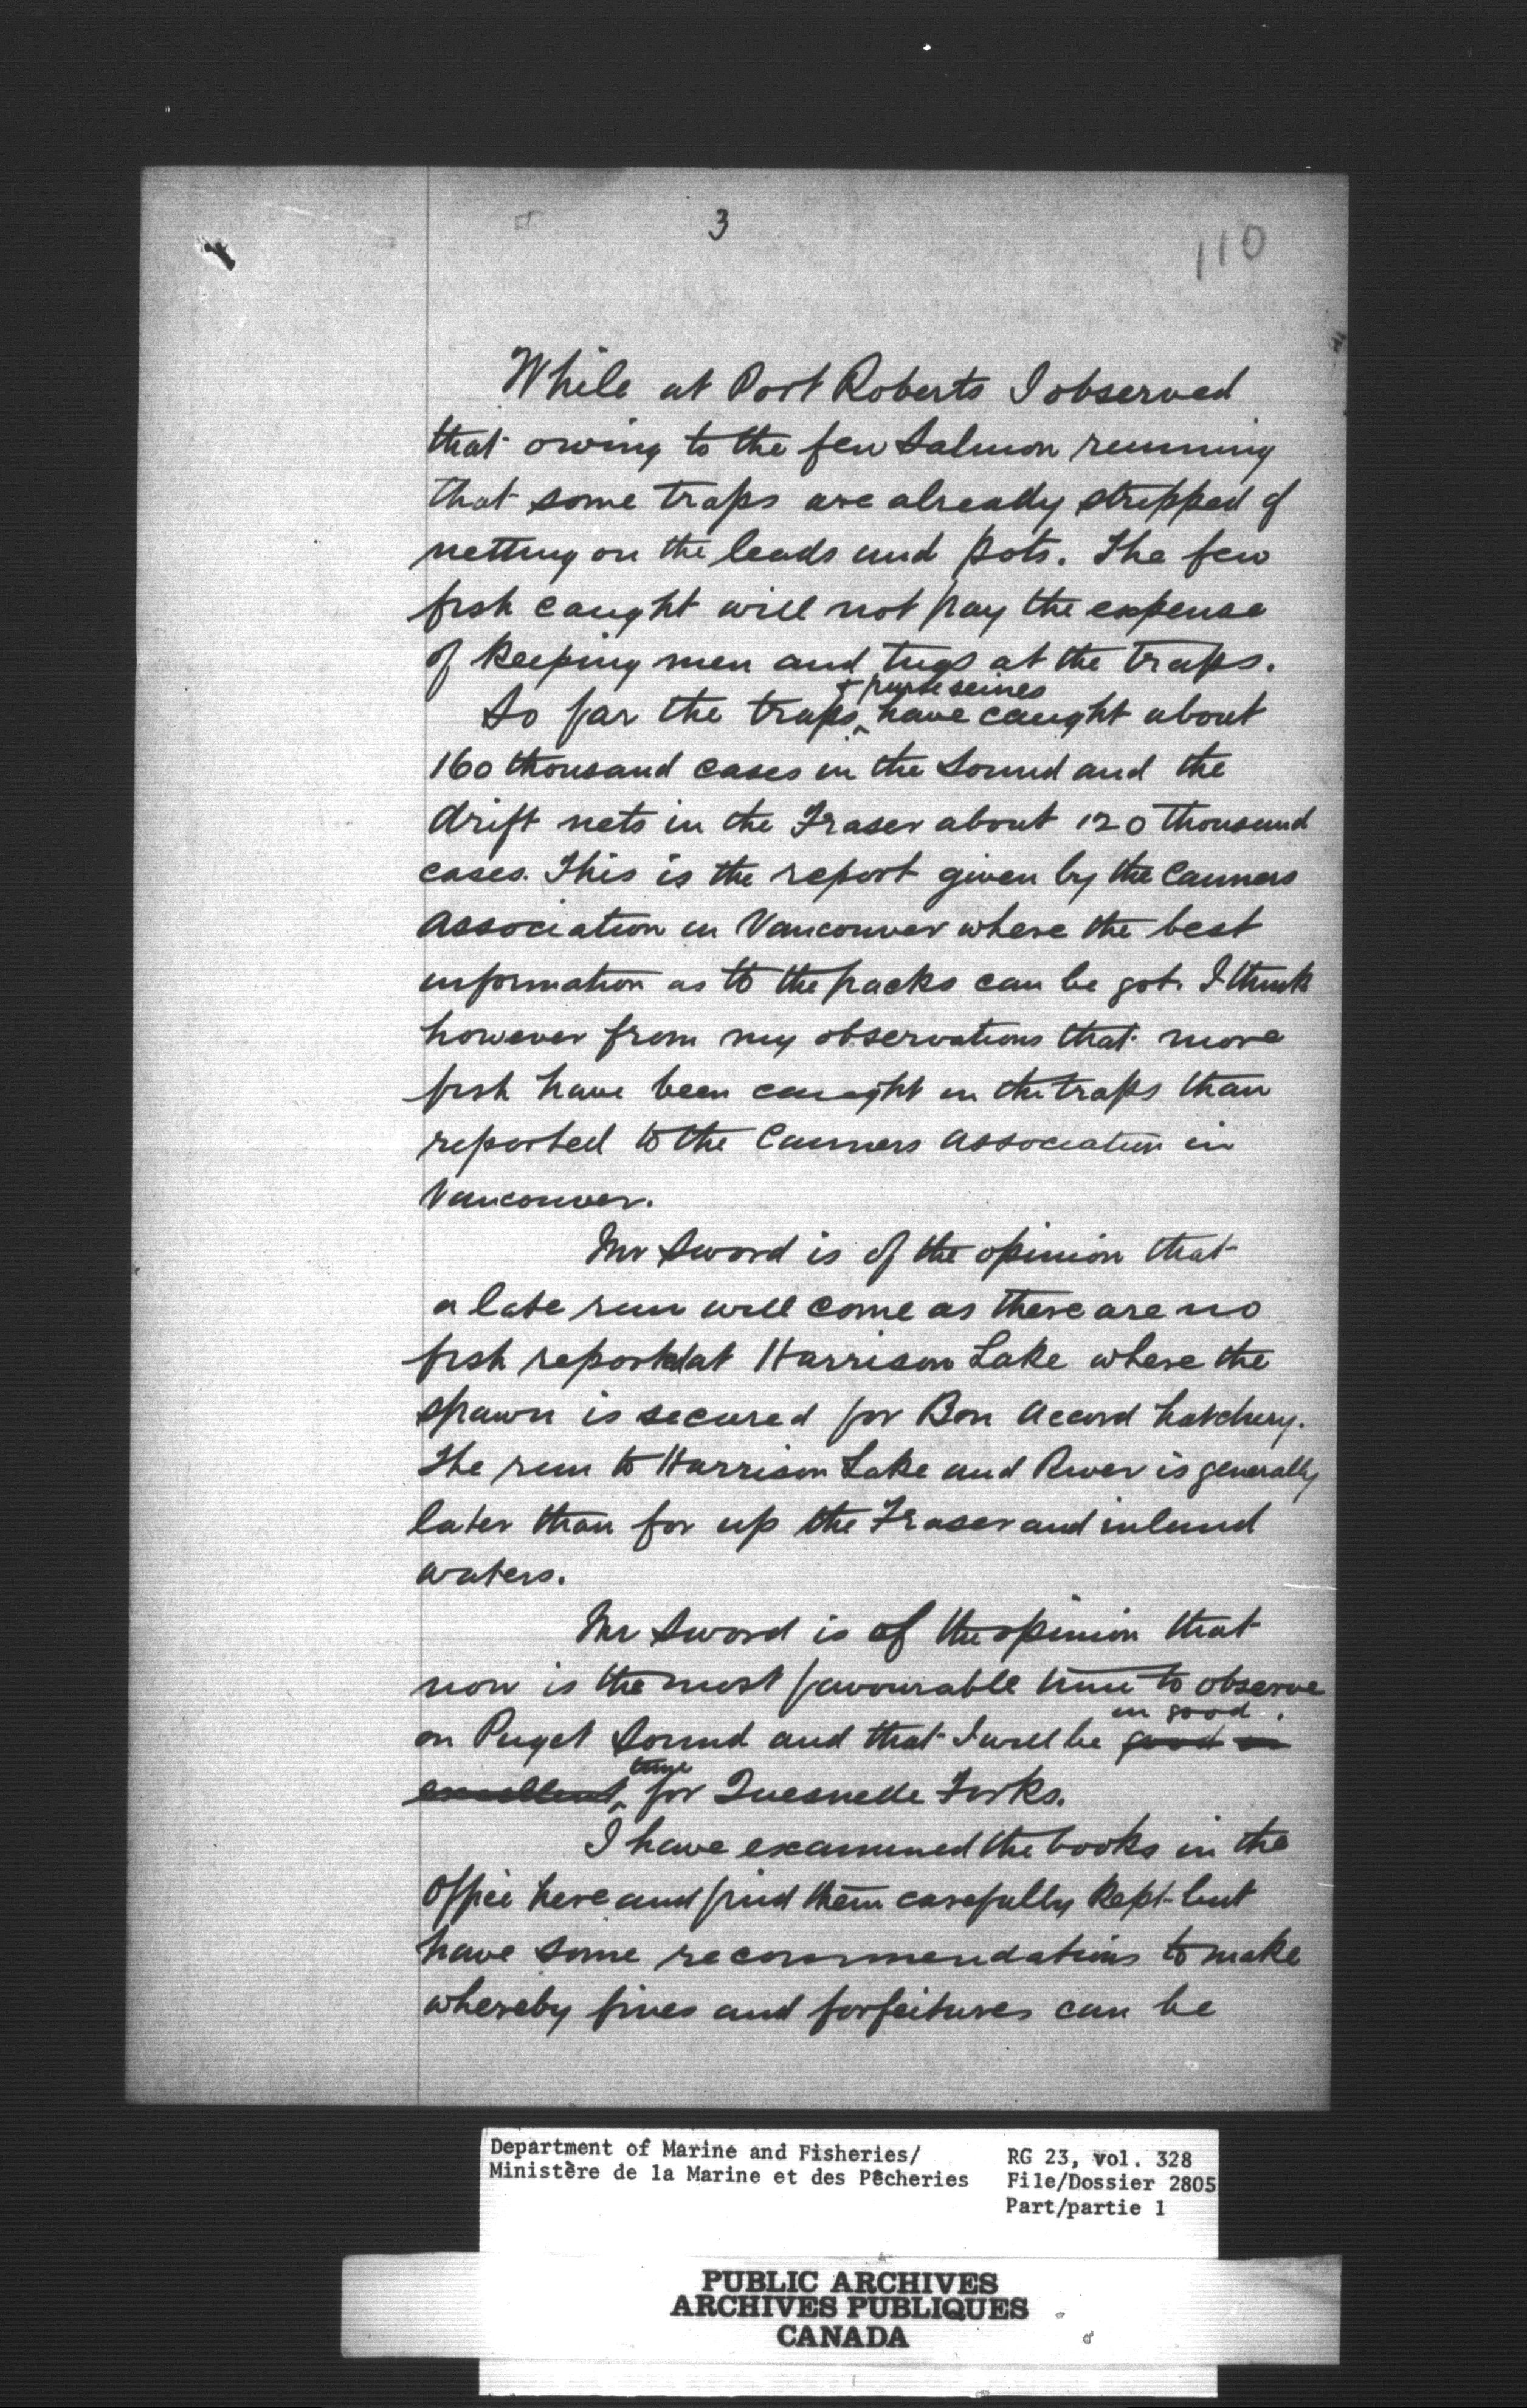 3
110
While at Port Roberts I observed
that owing to the few Salmon running
that some traps are already stripped of
netting on the leads and pots. The few
fish caught will not pay the expense
of keeping men and tugs at the traps.
+ purse seines
So far the traps ^ have caught about
160 thousand cases in the Sound and the
drift nets in the Fraser about 120 thousand
cases. This is the report given by the Canners
Association in Vancouver where the best
information as to the packs can be got. I think
however from my observations that more
fish have been caught in the traps than
reported to the Canners Association in
Vancouver.
Mr Sword is of the opinion that
a late run will come as there are no
fish reported at Harrison Lake where the
spawn is secured for Bon Accord hatchery.
The run to Harrison Lake and River is generally
later than for up the Fraser and inland
waters.
Mr Sword is of the opinion that
now is the most favourable time to observe
in good
on Puget Sound and that I will be good in
time
excellent ^ for Quesnelle Forks.
I have examined the books in the
Office here and find them carefully kept but
have some recommendations to make
whereby fines and forfeitures can be
Department of Marine and Fisheries/
Ministère de la Marine et des Pêcheries
RG 23, vol. 328
File/Dossier 2805
Part/partie 1
PUBLIC ARCHIVES
ARCHIVES PUBLIQUES
CANADA